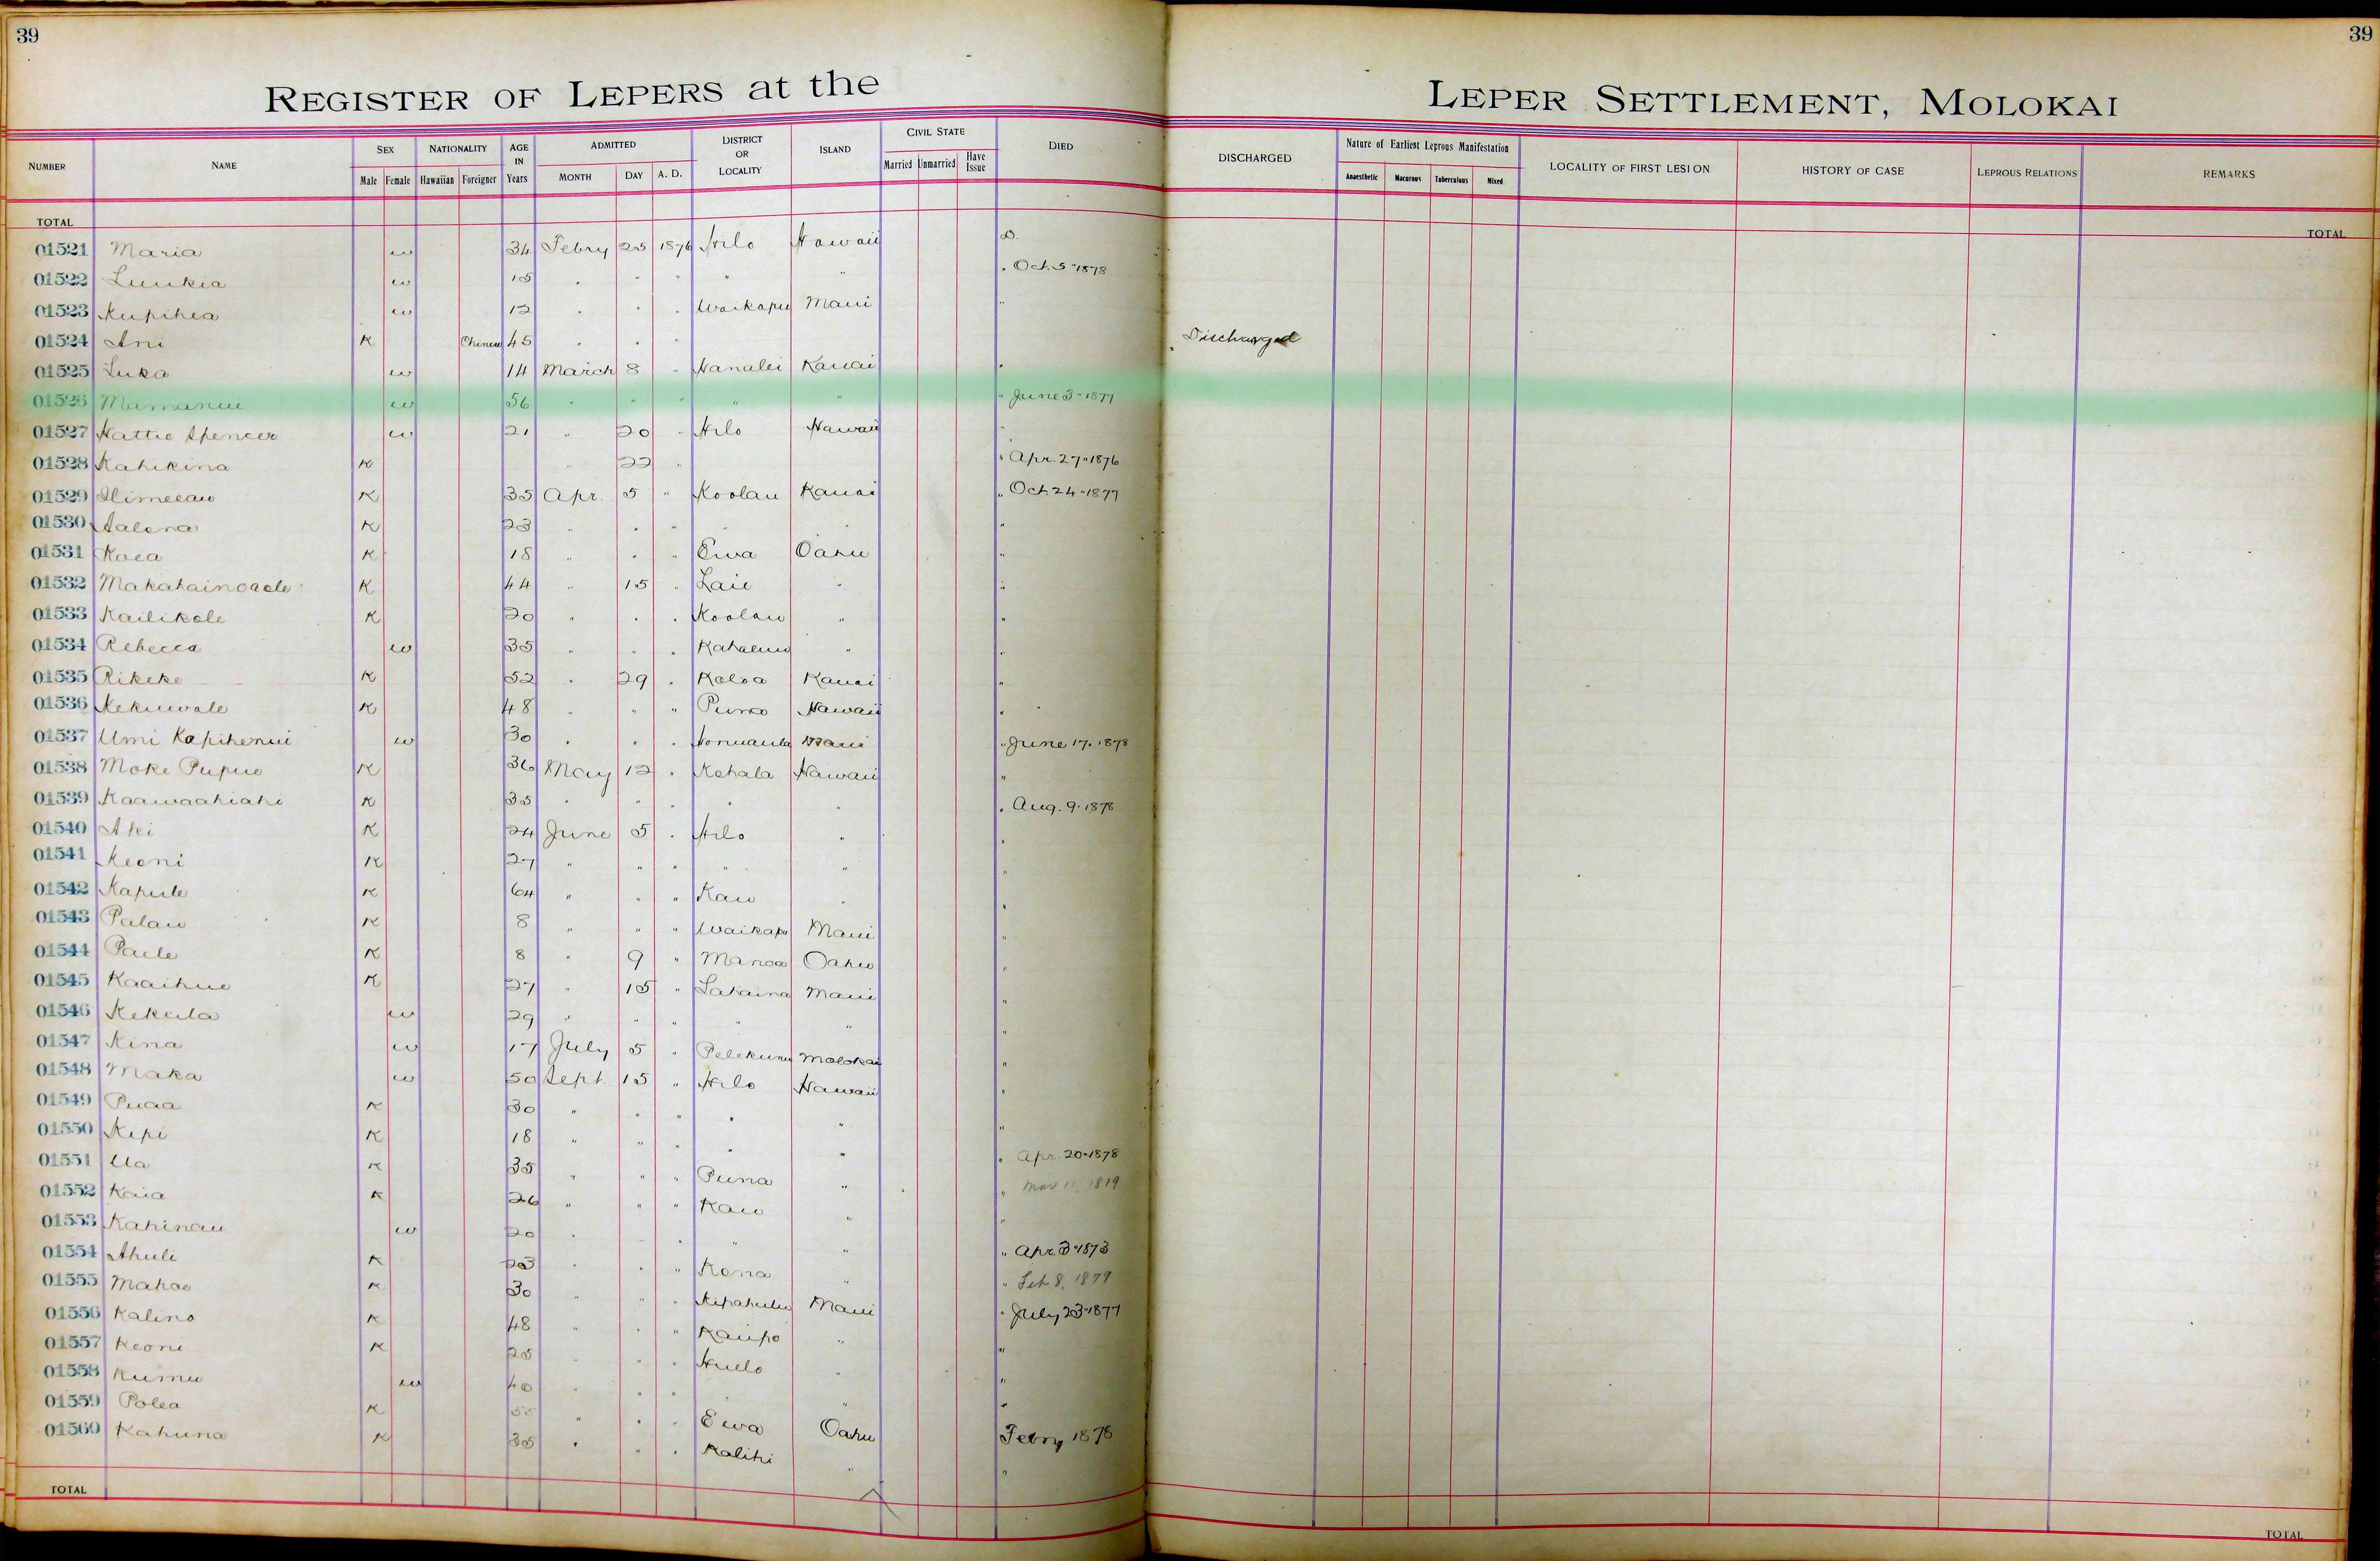 39
39
REGISTER OF LEPERS at the LEPER SETTLEMENT, MOLOKAI
NUMBER NAME SEX NATIONALITY AGE IN Years ADMITTED DISTRICT OR LOCALITY ISLAND CIVIL STATE DIED DISCHARGED Nature of Earliest Leprous Manifestation LOCALITY OF FIRST LESION HISTORY OF CASE LEPROUS RELATIONS REMARKS
Male Female Hawaiian Foreigner MONTH DAY A. D. Married Unmarried Have Issue Anaesthetic Macurous Tuberculous Mixed
TOTAL TOTAL
01521 Maria w 34 Febry 25 1876 Hilo Hawaii D.
01522 Luukia w 15 " " " " " " Oct. 5 "1878
01523 Kupihea w 12 " " " Waikapu Maui "
01524 Ani K Chinese 45 " " " Discharged
01525 Luka w 14 March 8 " Hanalei Kauai "
01526 Mamanui w 56 " " " " " " June 3 - 1877
01527 Hattie Spencer w 21 " 20 " Hilo Hawaii "
01528 Kahikina K " 22 " " Apr. 27 "1876
01529 K 35 Apr. 5 " Koolau Kauai " Oct. 24 - 1877
01530 Aalona K 23 " " " " " "
01531 Koea K 18 " " " Ewa Oahu "
01532 Makahainoaole K 44 " 15 " Laie " "
01533 Kailikole K 20 " " " Koolau " "
01534 Rebecca w 35 " " " Kahaluu " "
01535 Rikeke K 52 " 29 " Koloa Kauai "
01536 Kekuwale K 48 " " " Puna Hawaii "
01537 Umi Kapihenui w 30 " " " Honuaula Maui " June 17. 1878
01538 Moke Pupuo K 36 May 12 " Kohala Hawaii "
01539 Kaawaahiahi K 35 " " " " " " Aug. 9. 1878
01540 Aki K 24 June 5 " Hilo " "
01541 Keoni K 27 " " " " " "
01542 Kapule K 64 " " " Kau " "
01543 Palau K 8 " " " Waikapu Maui "
01544 Paule K 8 " 9 " Manoa Oahu "
01545 Kaaihue K 27 " 15 " Lahaina Maui "
01546 Kekula w 29 " " " " " "
01547 Kina w 17 July 5 " Pelekunu Molokai "
01548 Maka w 50 Sept. 15 " Hilo Hawaii "
01549 Puaa K 30 " " " " " "
01550 Kepi K 18 " " " " " "
01551 Ua K 35 " " " Puna " " Apr. 20 "1878
01552 Kaia K 26 " " " Kau " " Mar 11, 1879
01553 Kahinau w 20 " " " " " "
01554 Ahuli K 23 " " " Kona " " Apr. 3 "1873
01555 Mahoe K 30 " " " Kipahulu Maui " Feb 8, 1879
01556 Kalino K 48 " " " Kaupo " " July 23 "1877
01557 Keoni K 25 " " " Huelo " "
01558 Kumu w 40 " " " " "
01559 Polea K 55 " " " Ewa Oahu "
01560 Kahuna K 35 " " " Kalihi " Febry 1878
TOTAL TOTAL